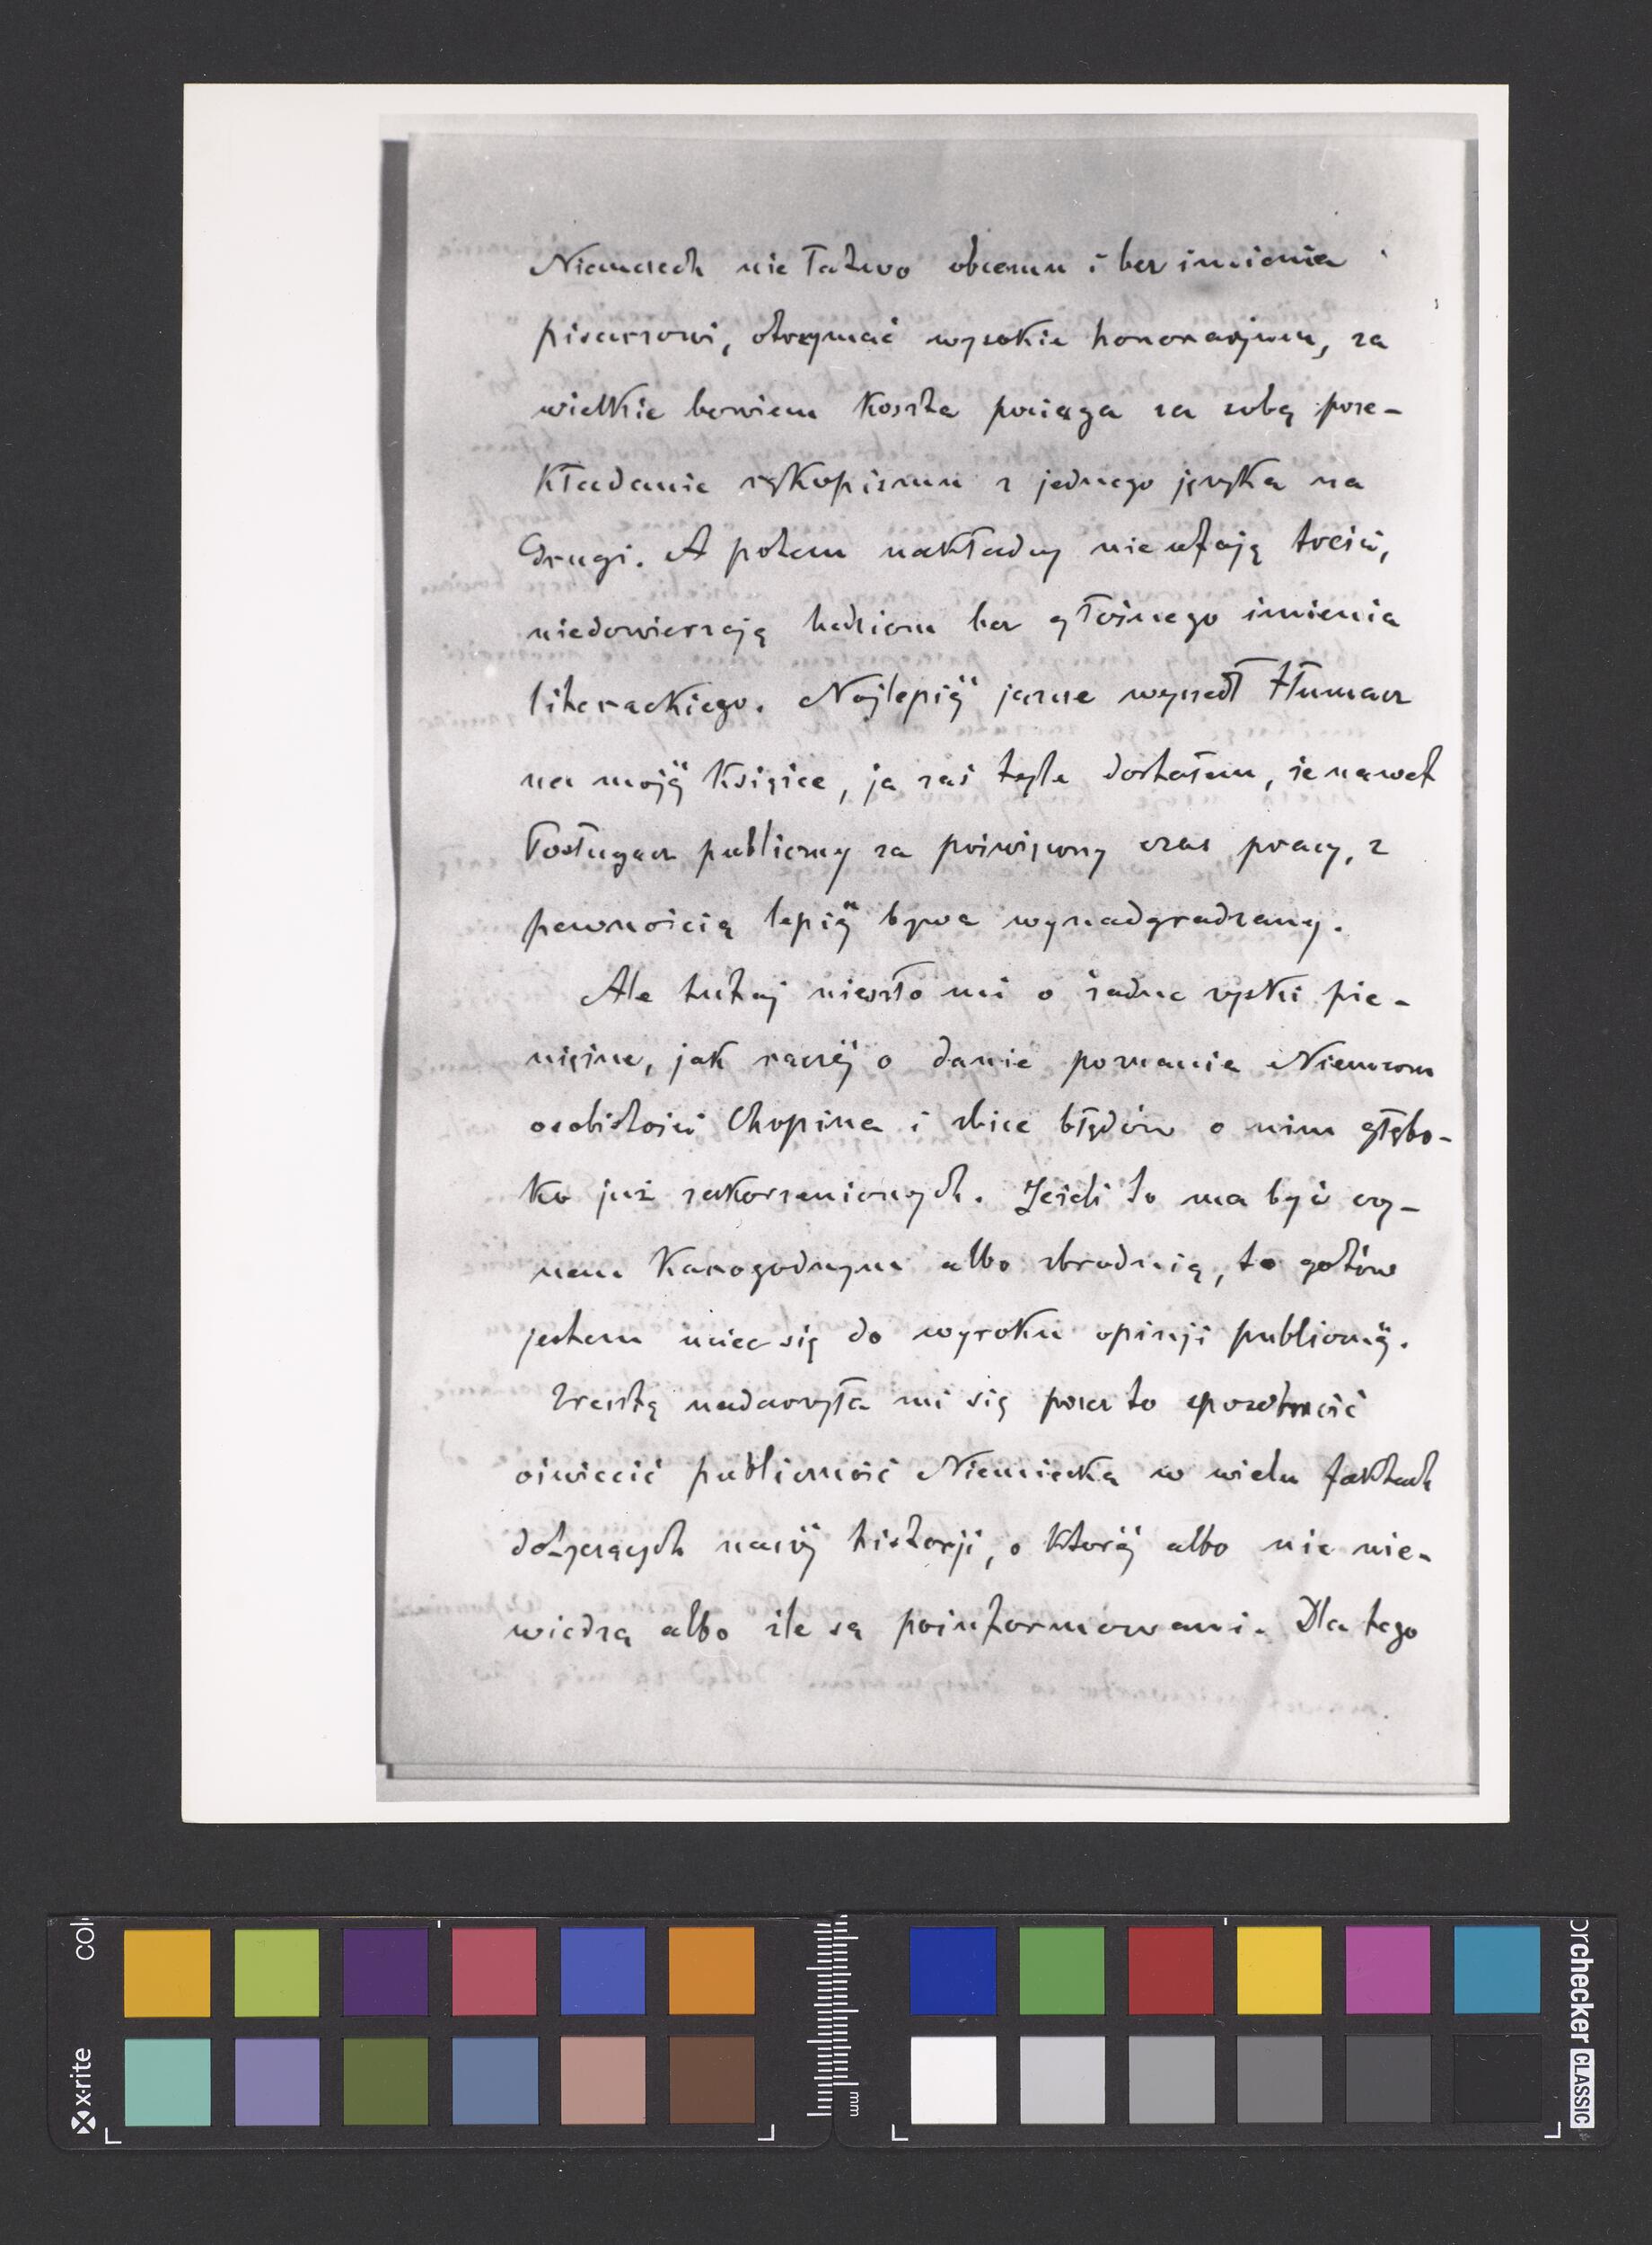 Niemczech nie łatwo obcemu i bez imienia
pisarzowi, otrzymać wysokie honorarjum, za
wielkie bowiem koszta pociąga za sobą prze-
kładanie rękopismu z jednego języka na
drugi. A potem nakładcy nie ufają treści,
niedowierzają ludziom bez głośnego imienia
literackiego. Najlepiéj jeszcze wyszedł tłumacz
na mojéj książce, ja zaś tyle dostałem, że nawet
posługacz publiczny za poświęcony czas pracy, z
pewnością lepiéj bywa wynadgradzany.
Ale tutaj nieszło mi o żadne zyski pie-
niężne, jak raczéj o danie poznania Niemcom
osobistości Chopina i zbicie błędów o nim głębo-
ko już zakorzenionych. Jeżeli to ma być czy-
nem karogodnym albo zbrodnią, to gotów
jestem uciec się do wyroku opinji publicznéj.
Zresztą nadarzyła mi się przez to sposobność
oświecić publiczność Niemiecką w wielu faktach
dotyczących naszéj historji, o któréj albo nic nie-
wiedzą albo źle są poinformowani. Dla tego
colo
x-rite
mm
orchecker CLASSIC